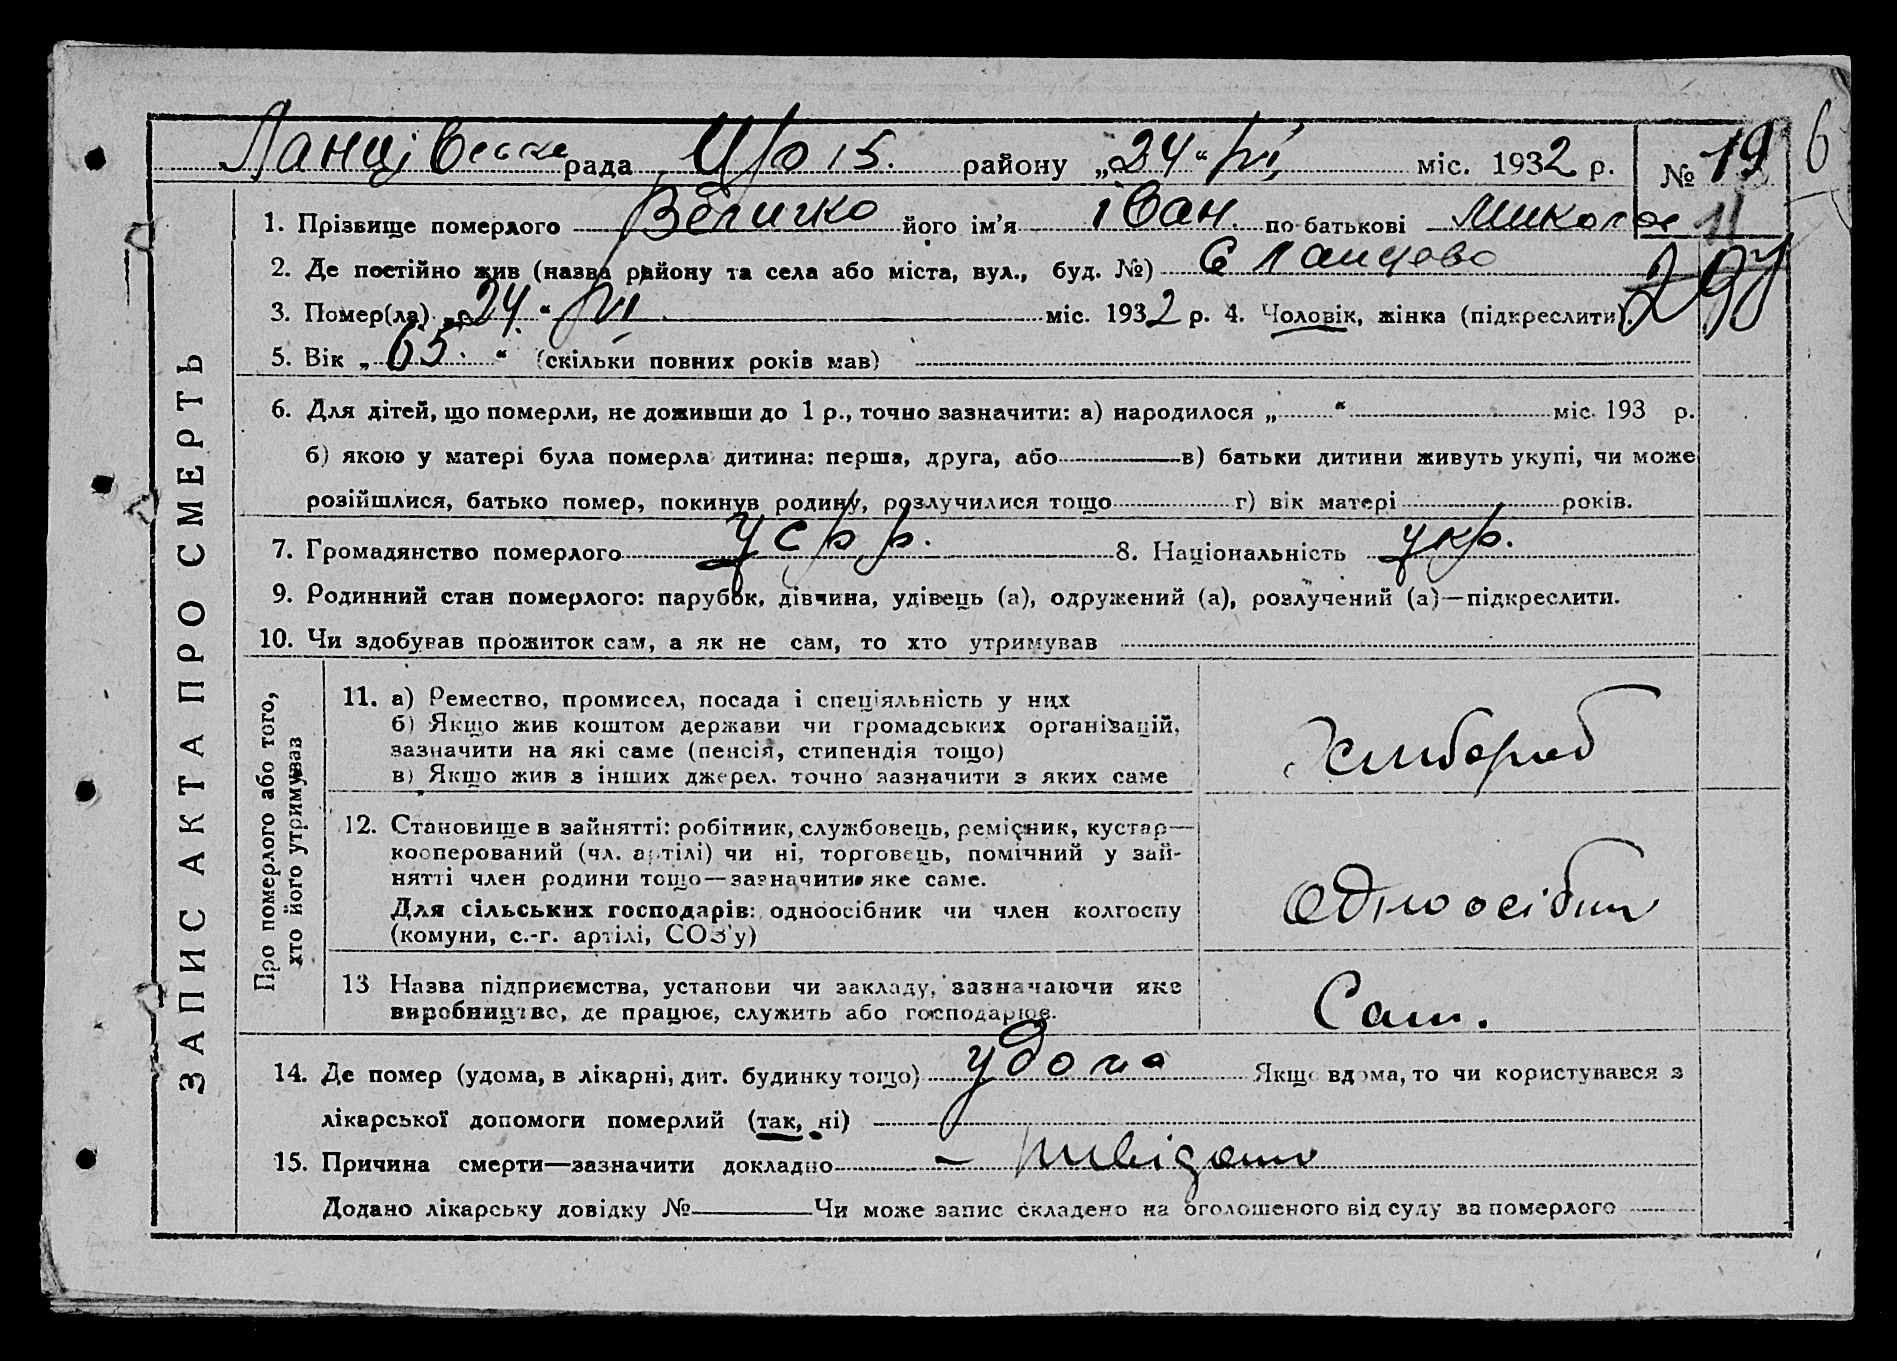 Ланцівська рада района „24“ VI міс. 1932 р. № 19 6
1. Прізвище померлого Величко його ім'я Іван. по-батькові Микол 11
2. Де постійно жив (назва району та села або міста, вул., буд. №) с Ланцево
3. Помер(ла) „24“ VI міс. 1932 р. 4. Чоловік, жінка (підкреслити)
5. Вік „65.“ (скільки повних років мав)
6. Для дітей, що померли, не доживши до 1 р., точно зазначити: а) народилося „ “ міс. 193 р.
б) якою у матері була померла дитина: перша, друга, або в) батьки дитини живуть укупі, чи може
розійшлися, батько помер, покинув родину, розлучилися тощо г) вік матері років.
7. Громадянство померлого УСРР. 8. Національність укр.
9. Родинний стан померлого: парубок, дівчина, удівець (а), одружений (а), розлучений (а)—підкреслити.
10. Чи здобував прожиток сам, а як не сам, то хто утримував
ЗАПИС АКТА ПРО СМЕРТЬ
Про померлого або того,
хто його утримував
11. а) Ремество, промисел, посада і спеціяльність у них
б) Якщо жив коштом держави чи громадських організацій,
зазначити на які саме (пенсія, стипендія тощо)
в) Якщо жив з інших джерел. точно зазначити з яких саме
Хлибороб
12. Становище в зайнятті: робітник, службовець, ремісник, кустар—
кооперований (чл. артілі) чи ні, торговець, помічний у зай-
нятті член родини тощо—зазначити яке саме.
Для сільських господарів: одноосібник чи член колгоспу
(комуни, с.-г. артілі, СОЗ'у)
одноосібник
13 Назва підприємства, установи чи закладу, зазначаючи яке
виробництво, де працює, служить або господарює.
Сам.
14. Де помер (удома, в лікарні, дит. будинку тощо) удома Якщо вдома, то чи користувався з
лікарської допомоги померлий (так, ні)
15. Причина смерти—зазначити докладно
Додано лікарську довідку № Чи може запис складено на оголошеного від суду за померлого